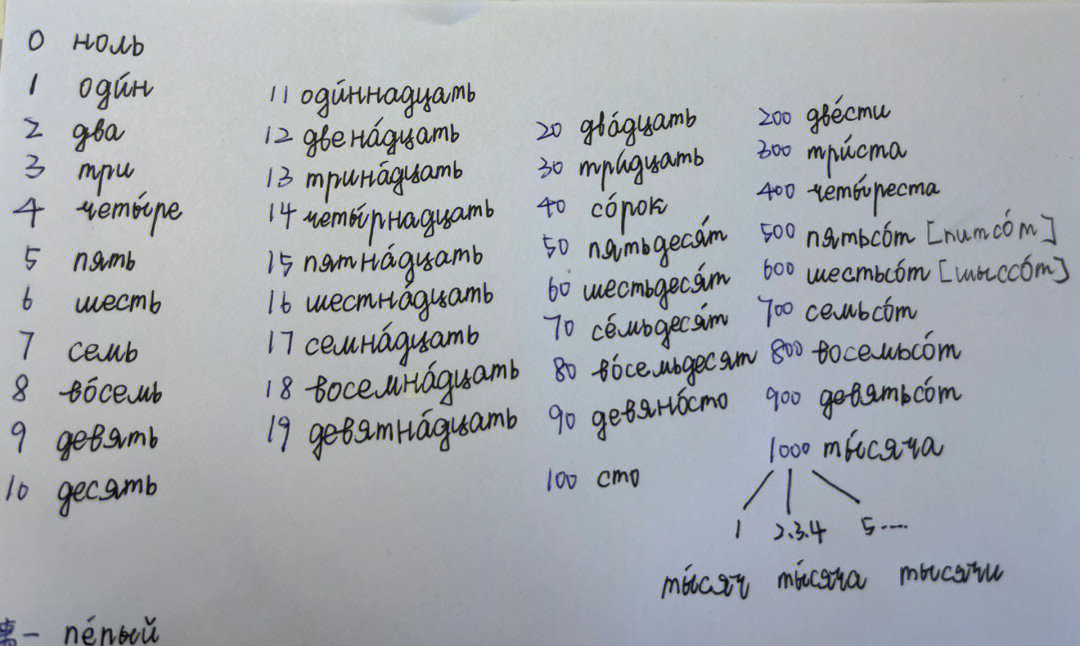 0 ноль
1 оди́н
2 два
3 три
4 четы́ре
5 пять
6 шесть
7 семь
8 во́семь
9 девять
10 десять
11 оди́ннадцать
12 двена́дцать
13 трина́дцать
14 четы́рнадцать
15 пятна́дцать
16 шестна́дцать
17 семна́дцать
18 восемна́дцать
19 девятна́дцать
20 два́дцать
30 три́дцать
40 со́рок
50 пятьдеся́т
60 шестьдеся́т
70 се́мьдеся́т
80 во́семьдесят
90 девяно́сто
100 сто
200 две́сти
300 три́ста
400 четы́реста
500 пятьсо́т [питсо́т]
600 шестьсо́т [шыссо́т]
700 семьсо́т
800 восемьсо́т
900 девятьсо́т
1000 ты́сяча
1 2.3.4 5....
ты́сяч ты́сяча тысячи
- пе́пый